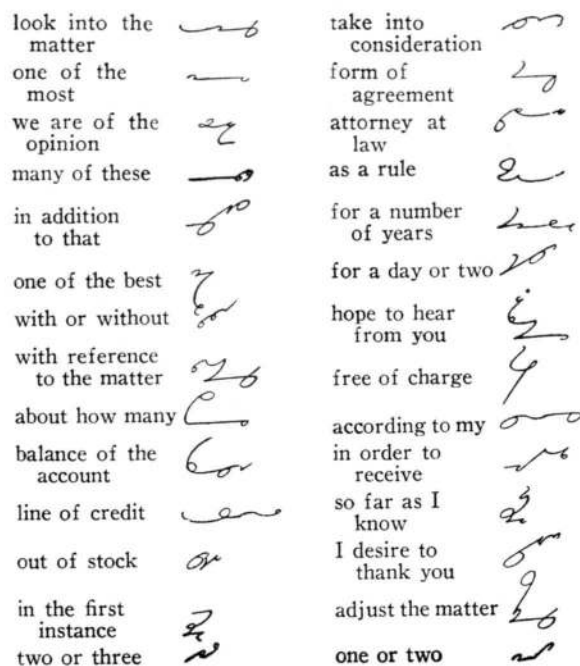 look into the
matter
one of the
most
we are of the
opinion
many of these
in addition
to that
one of the best
with or without
with reference
to the matter
about how many
balance of the
account
line of credit
out of stock
in the first
instance
two or three
take into
consideration
form of
agreement
attorney at
law
as a rule
for a number
of years
for a day or two
hope to hear
from you
free of charge
according to my
in order to
receive
so far as I
know
I desire to
thank you
adjust the matter
one or two